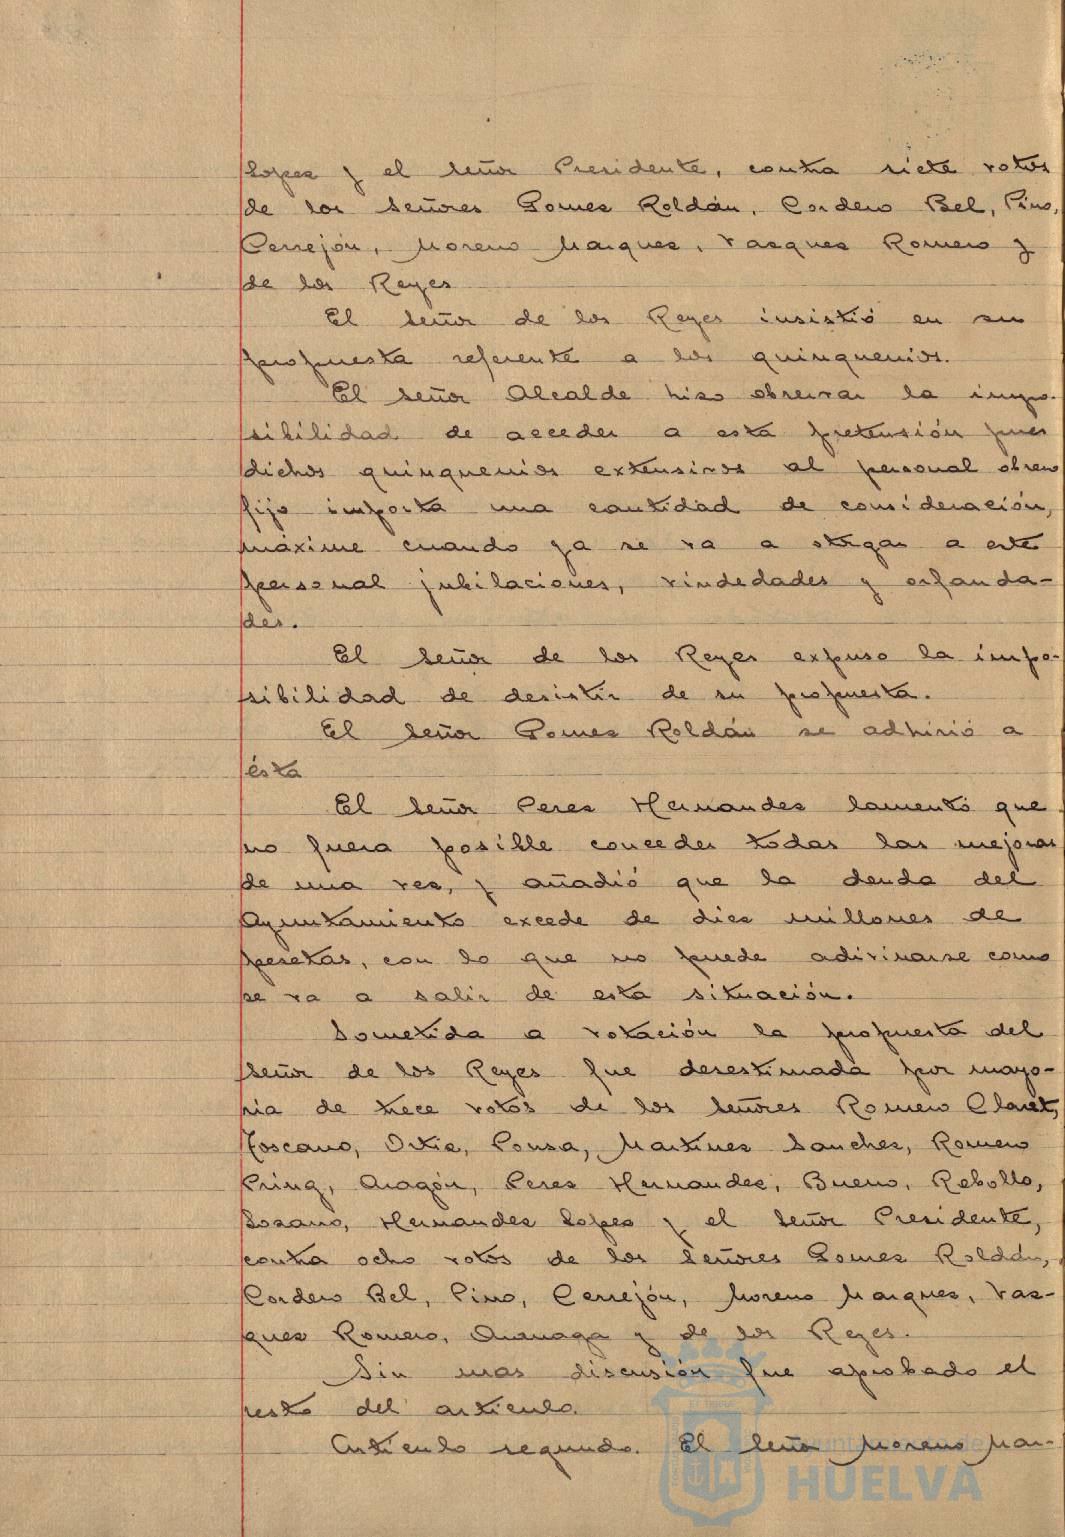 Lopez y el señor Presidente, contra siete votos
de los señores Gomez Roldán, Cordero Bel, Pino,
Cerrejón, Moreno Marquez, Vazquez Romero y
de los Reyes
El señor de los Reyes insistió en su
propuesta referente a los quinquenios.
El señor Alcalde hizo observar la impo-
sibilidad de acceder a esta pretensión pues
dichos quinquenios extensivos al personal obrero
fijo importa una cantidad de consideración,
máxime cuando ya se va a otorgar a este
personal jubilaciones, viudedades y orfanda-
des.
El señor de los Reyes expuso la impo-
sibilidad de desistir de su propuesta.
El señor Gomez Roldán se adhirió a
ésta
El señor Perez Hernandez lamentó que
no fuera posible conceder todas las mejoras
de una vez, y añadió que la deuda del
Ayuntamiento excede de diez millones de
pesetas, con lo que no puede adivinarse como
se va a salir de esta situación.
Sometida a votación la propuesta del
señor de los Reyes fue desestimada por mayo-
ria de trece votos de los señores Romero Claret,
Toscano, Ortiz, Ponza, Martinez Sanchez, Romero
Pring, Aragón, Perez Hernandez, Bueno, Rebollo,
Lozano, Hernandez Lopez y el señor Presidente,
contra ocho votos de los señores Gomez Roldán,
Cordero Bel, Pino, Cerrejón, Moreno Marquez, Vaz-
quez Romero, Quinaga y de los Reyes.
Sin mas discusión fue aprobado el
resto del artículo.
Artículo segundo. El señor Moreno Mar-
Ayuntamiento de
HUELVA